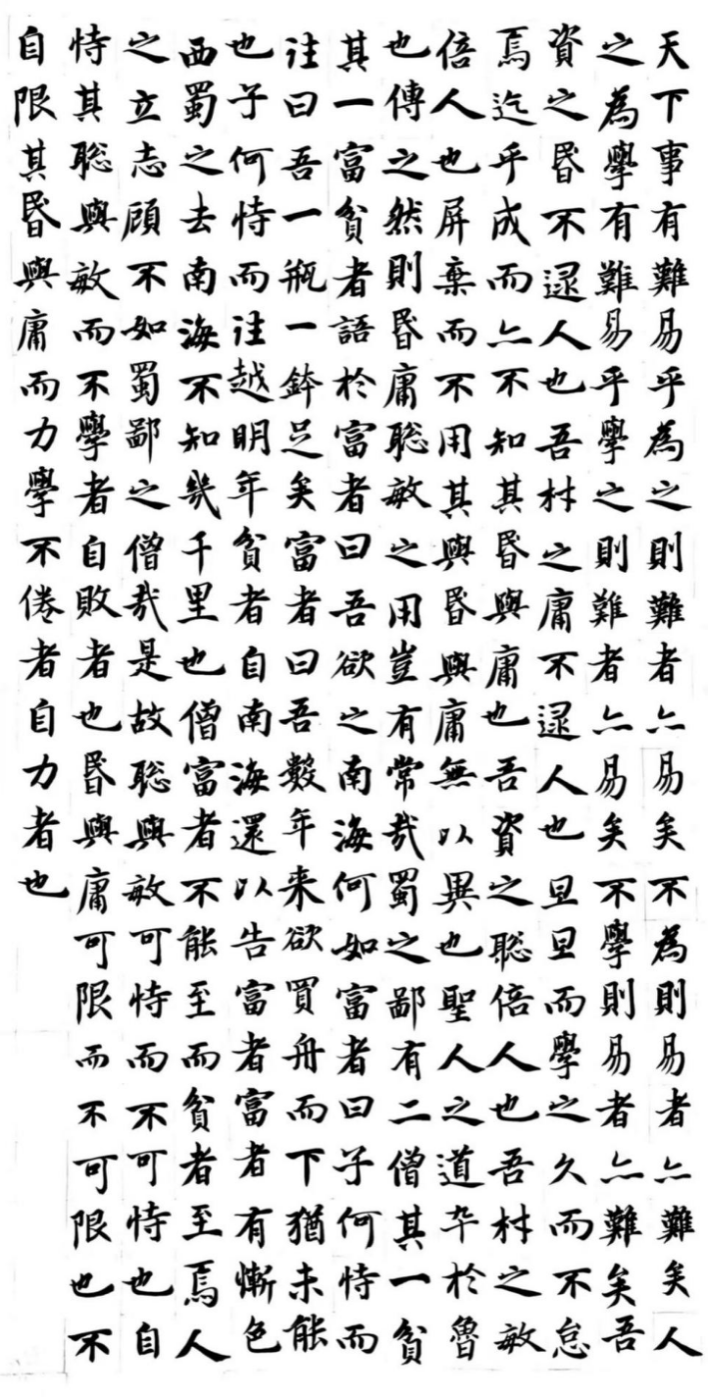 天下事有難易乎為之則難者亦易矣不為則易者亦難矣人
之為學有難易乎學之則難者亦易矣不學則易者亦難矣吾
資之昬不逮人也吾材之庸不逮人也旦旦而學之久而不怠
焉迄乎成而亦不知其昬與庸也吾資之聡倍人也吾材之敏
倍人也屏棄而不用其與昬與庸無以異也聖人之道卒於魯
也傳之然則昬庸聡敏之用豈有常哉蜀之鄙有二僧其一貧
其一富貧者語於富者曰吾欲之南海何如富者曰子何恃而
往曰吾一瓶一鉢足矣富者曰吾數年来欲買舟而下猶未能
也子何恃而往越明年貧者自南海還以告富者富者有慚色
西蜀之去南海不知幾千里也僧富者不能至而貧者至焉人
之立志顧不如蜀鄙之僧哉是故聡與敏可恃而不可恃也自
恃其聡與敏而不學者自敗者也昬與庸可限而不可限也不
自限其昬與庸而力學不倦者自力者也